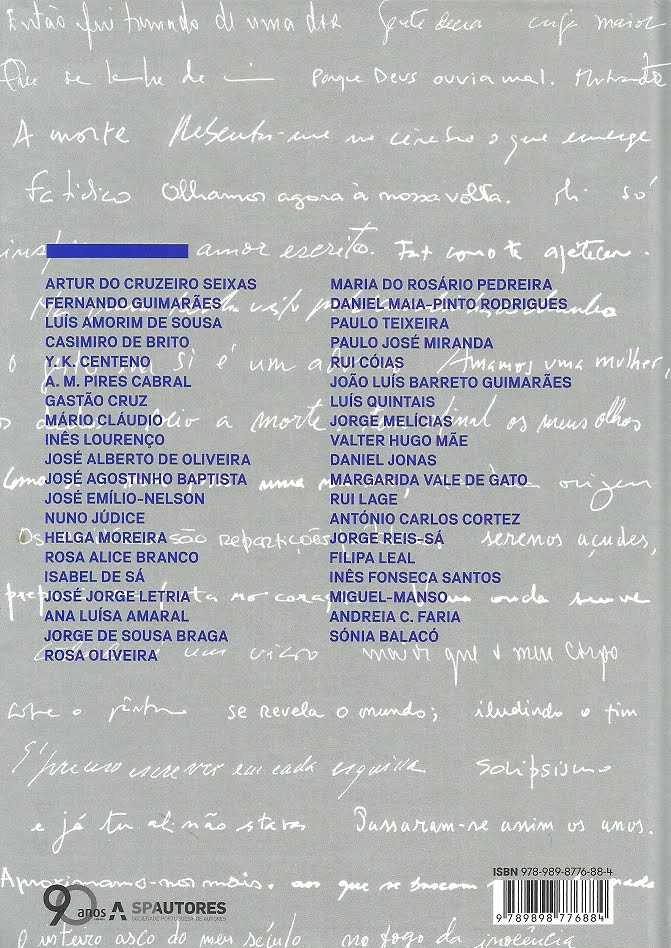 Então fui tomado de uma dor Gente cuja maior
Que se lembre de Porque Deus ouvia mal.
A morte Rebenta-me no cérebro o que emerge
fatídico Olhamos agora à nossa volta. só
amor escrito. Faz como te apetecer.
ARTUR DO CRUZEIRO SEIXAS
FERNANDO GUIMARÃES
LUÍS AMORIM DE SOUSA
CASIMIRO DE BRITO
Y. K. CENTENO
A. M. PIRES CABRAL
GASTÃO CRUZ
MÁRIO CLÁUDIO
INÊS LOURENÇO
JOSÉ ALBERTO DE OLIVEIRA
JOSÉ AGOSTINHO BAPTISTA
JOSÉ EMÍLIO-NELSON
NUNO JÚDICE
HELGA MOREIRA
ROSA ALICE BRANCO
ISABEL DE SÁ
JOSÉ JORGE LETRIA
ANA LUÍSA AMARAL
JORGE DE SOUSA BRAGA
ROSA OLIVEIRA
MARIA DO ROSÁRIO PEDREIRA
DANIEL MAIA-PINTO RODRIGUES
PAULO TEIXEIRA
PAULO JOSÉ MIRANDA
RUI CÓIAS
JOÃO LUÍS BARRETO GUIMARÃES
LUÍS QUINTAIS
JORGE MELÍCIAS
VALTER HUGO MÃE
DANIEL JONAS
MARGARIDA VALE DE GATO
RUI LAGE
ANTÓNIO CARLOS CORTEZ
JORGE REIS-SÁ
FILIPA LEAL
INÊS FONSECA SANTOS
MIGUEL-MANSO
ANDREIA C. FARIA
SÓNIA BALACÓ
si é um Amamos uma mulher,
a morte final os meus olhos
uma origem
Os são repartições serenos açudes,
onda suave
um maior que o meu corpo
sobre o se revela o mundo; iludindo o fim
É preciso escrever em cada esquina Solipsismo
e já tu ali não estavas Passaram-se assim os anos.
Aproximamo-nos mais. ao que se buscam
O inteiro asco do meu século no fogo da inocência
90 anos A SPAUTORES
SOCIEDADE PORTUGUESA DE AUTORES
ISBN 978-989-8776-88-4
9 789898 776884